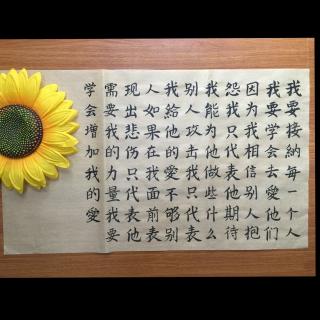 我要接納每一个人
我要学会去愛他们
因为我相信别人抱
怨我只代表他期待
我能为他做些什么
别人攻击我只代表
我給他的爱不够别
人如果在我面前表
現出悲伤只代表他
需要我的力量我要
学会增加我的愛